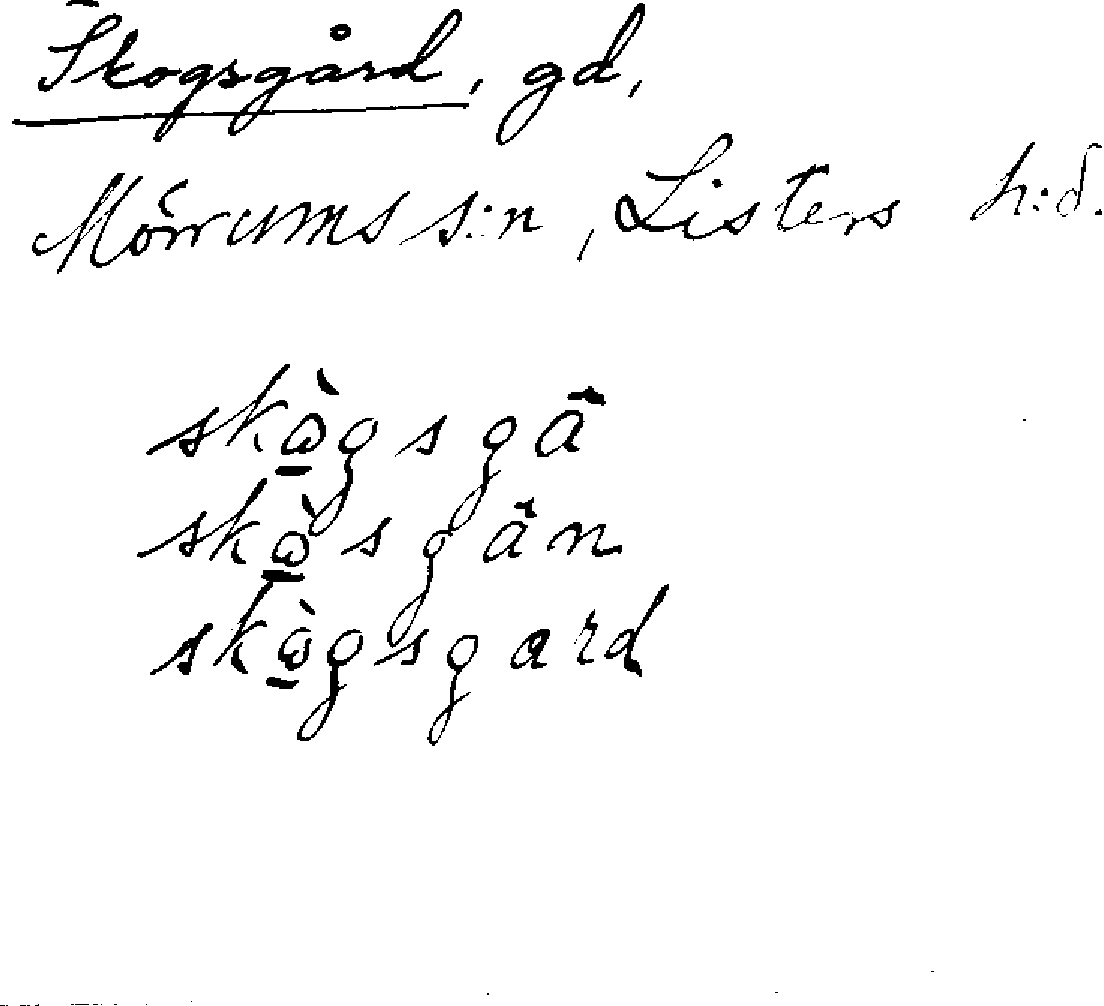 Skogsgård, gd,
Mörrums s:n, Listers h:d.
skὼ̱gsgâ
skὼ̱sgân
skὼ̱gsgard